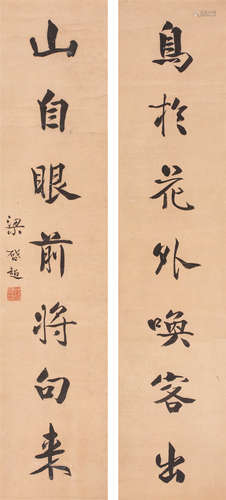 鳥於花外喚客出
山自眼前将句来
梁啓超